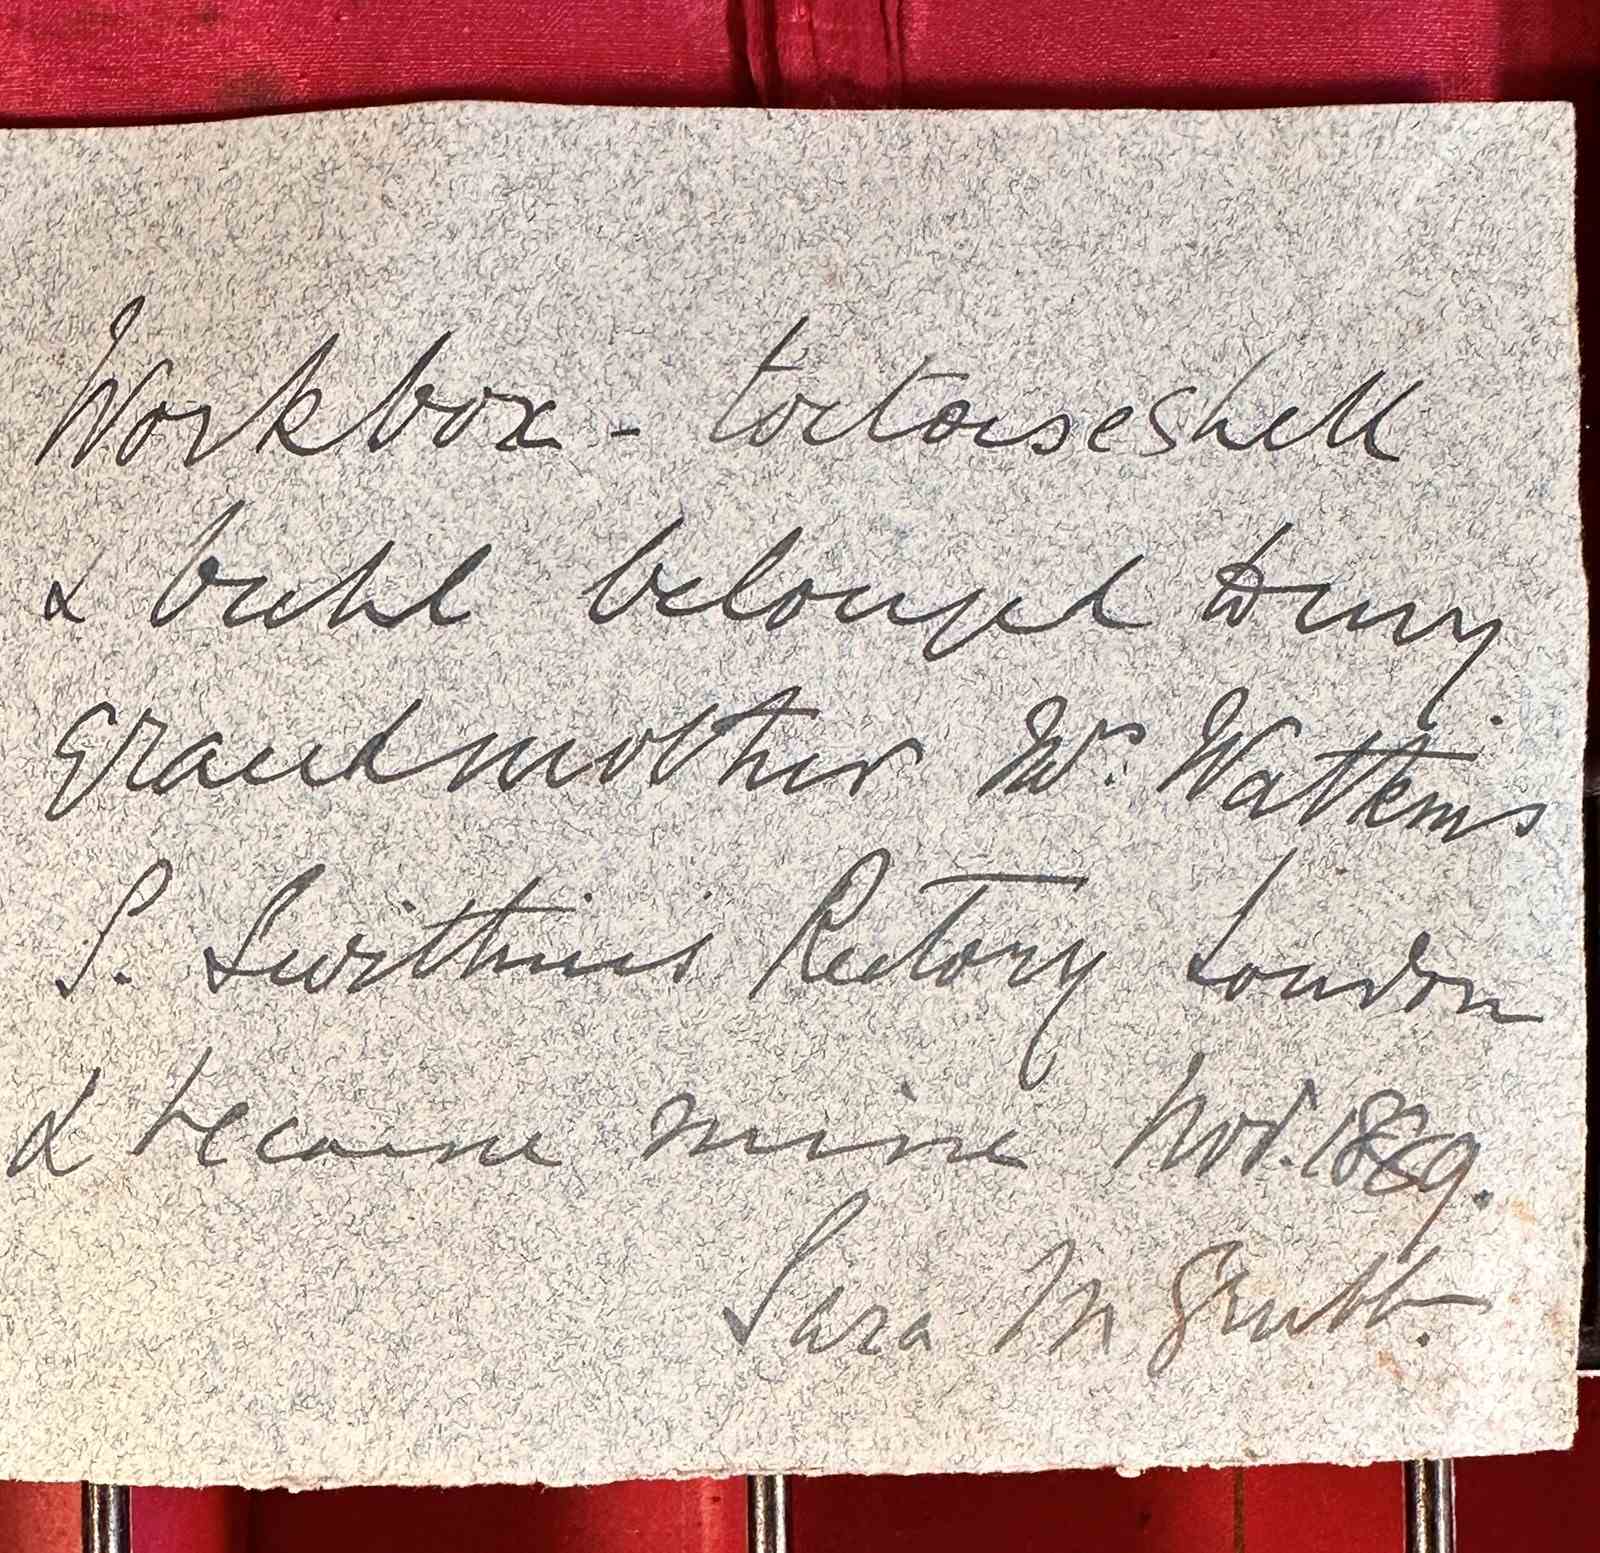 Workbox - tortoiseshell
& buhl belonged to my
grandmother Mrs Watkins
S. Swithin's Rectory London
& became mine Nov. 1889.
Sara M Grubb.